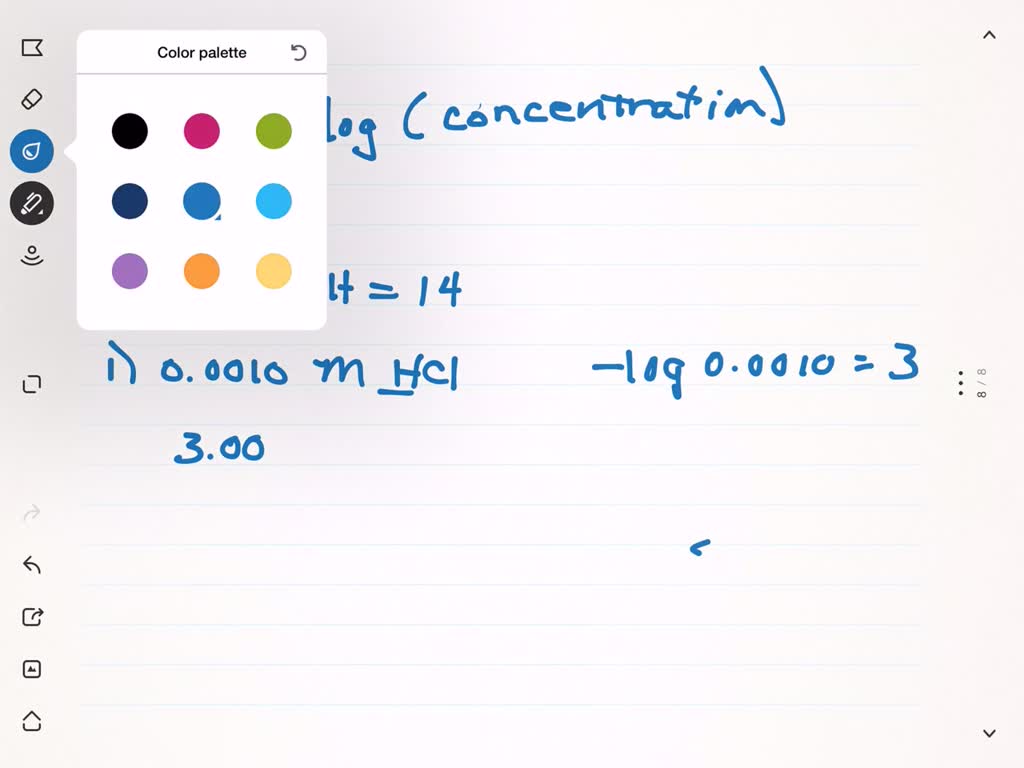 Color palette
log (concentration)
H = 14
1) 0.0010 m HCl
-log 0.0010 = 3
8 / 8
3.00